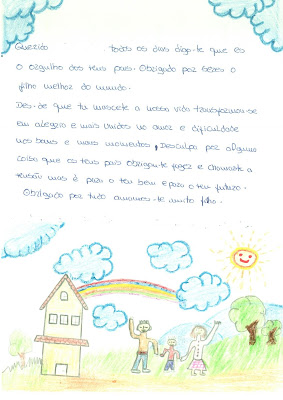 Querido todos os dias digo-te que és
o orgulho dos teus pais. Obrigado por seres o
filho melhor do mundo.
Des-de que tu nasceste a nossa vida transformou-se
em alegria e mais unidos no amor e dificuldade
nos bons e maus momentos, Desculpa por alguma
coisa que os teus pais obrigam-te fazer e chamar-te a
mas é para o teu bem e para o teu futuro.
Obrigado por tudo amamos-te muito filho.